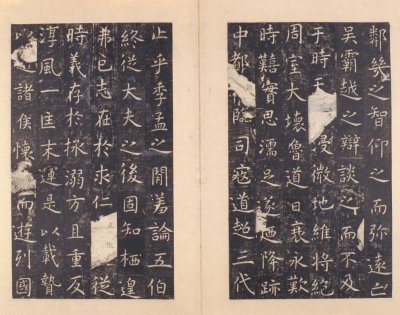 鄰幾之智仰之而彌遠亡
吳霸越之辯談之而不及
于時天寖微地維將絕
周室大壞魯道日衰永歎
時囏實思濡足遂迺降跡
中都臨司寇道超三代
止乎季孟之閒羞論五伯
終從大夫之後固知栖遑
弗已志在於求仁從
時義存於拯溺方且重反
淳風一匡末運是以載贄
以諸侯懷而遊列國